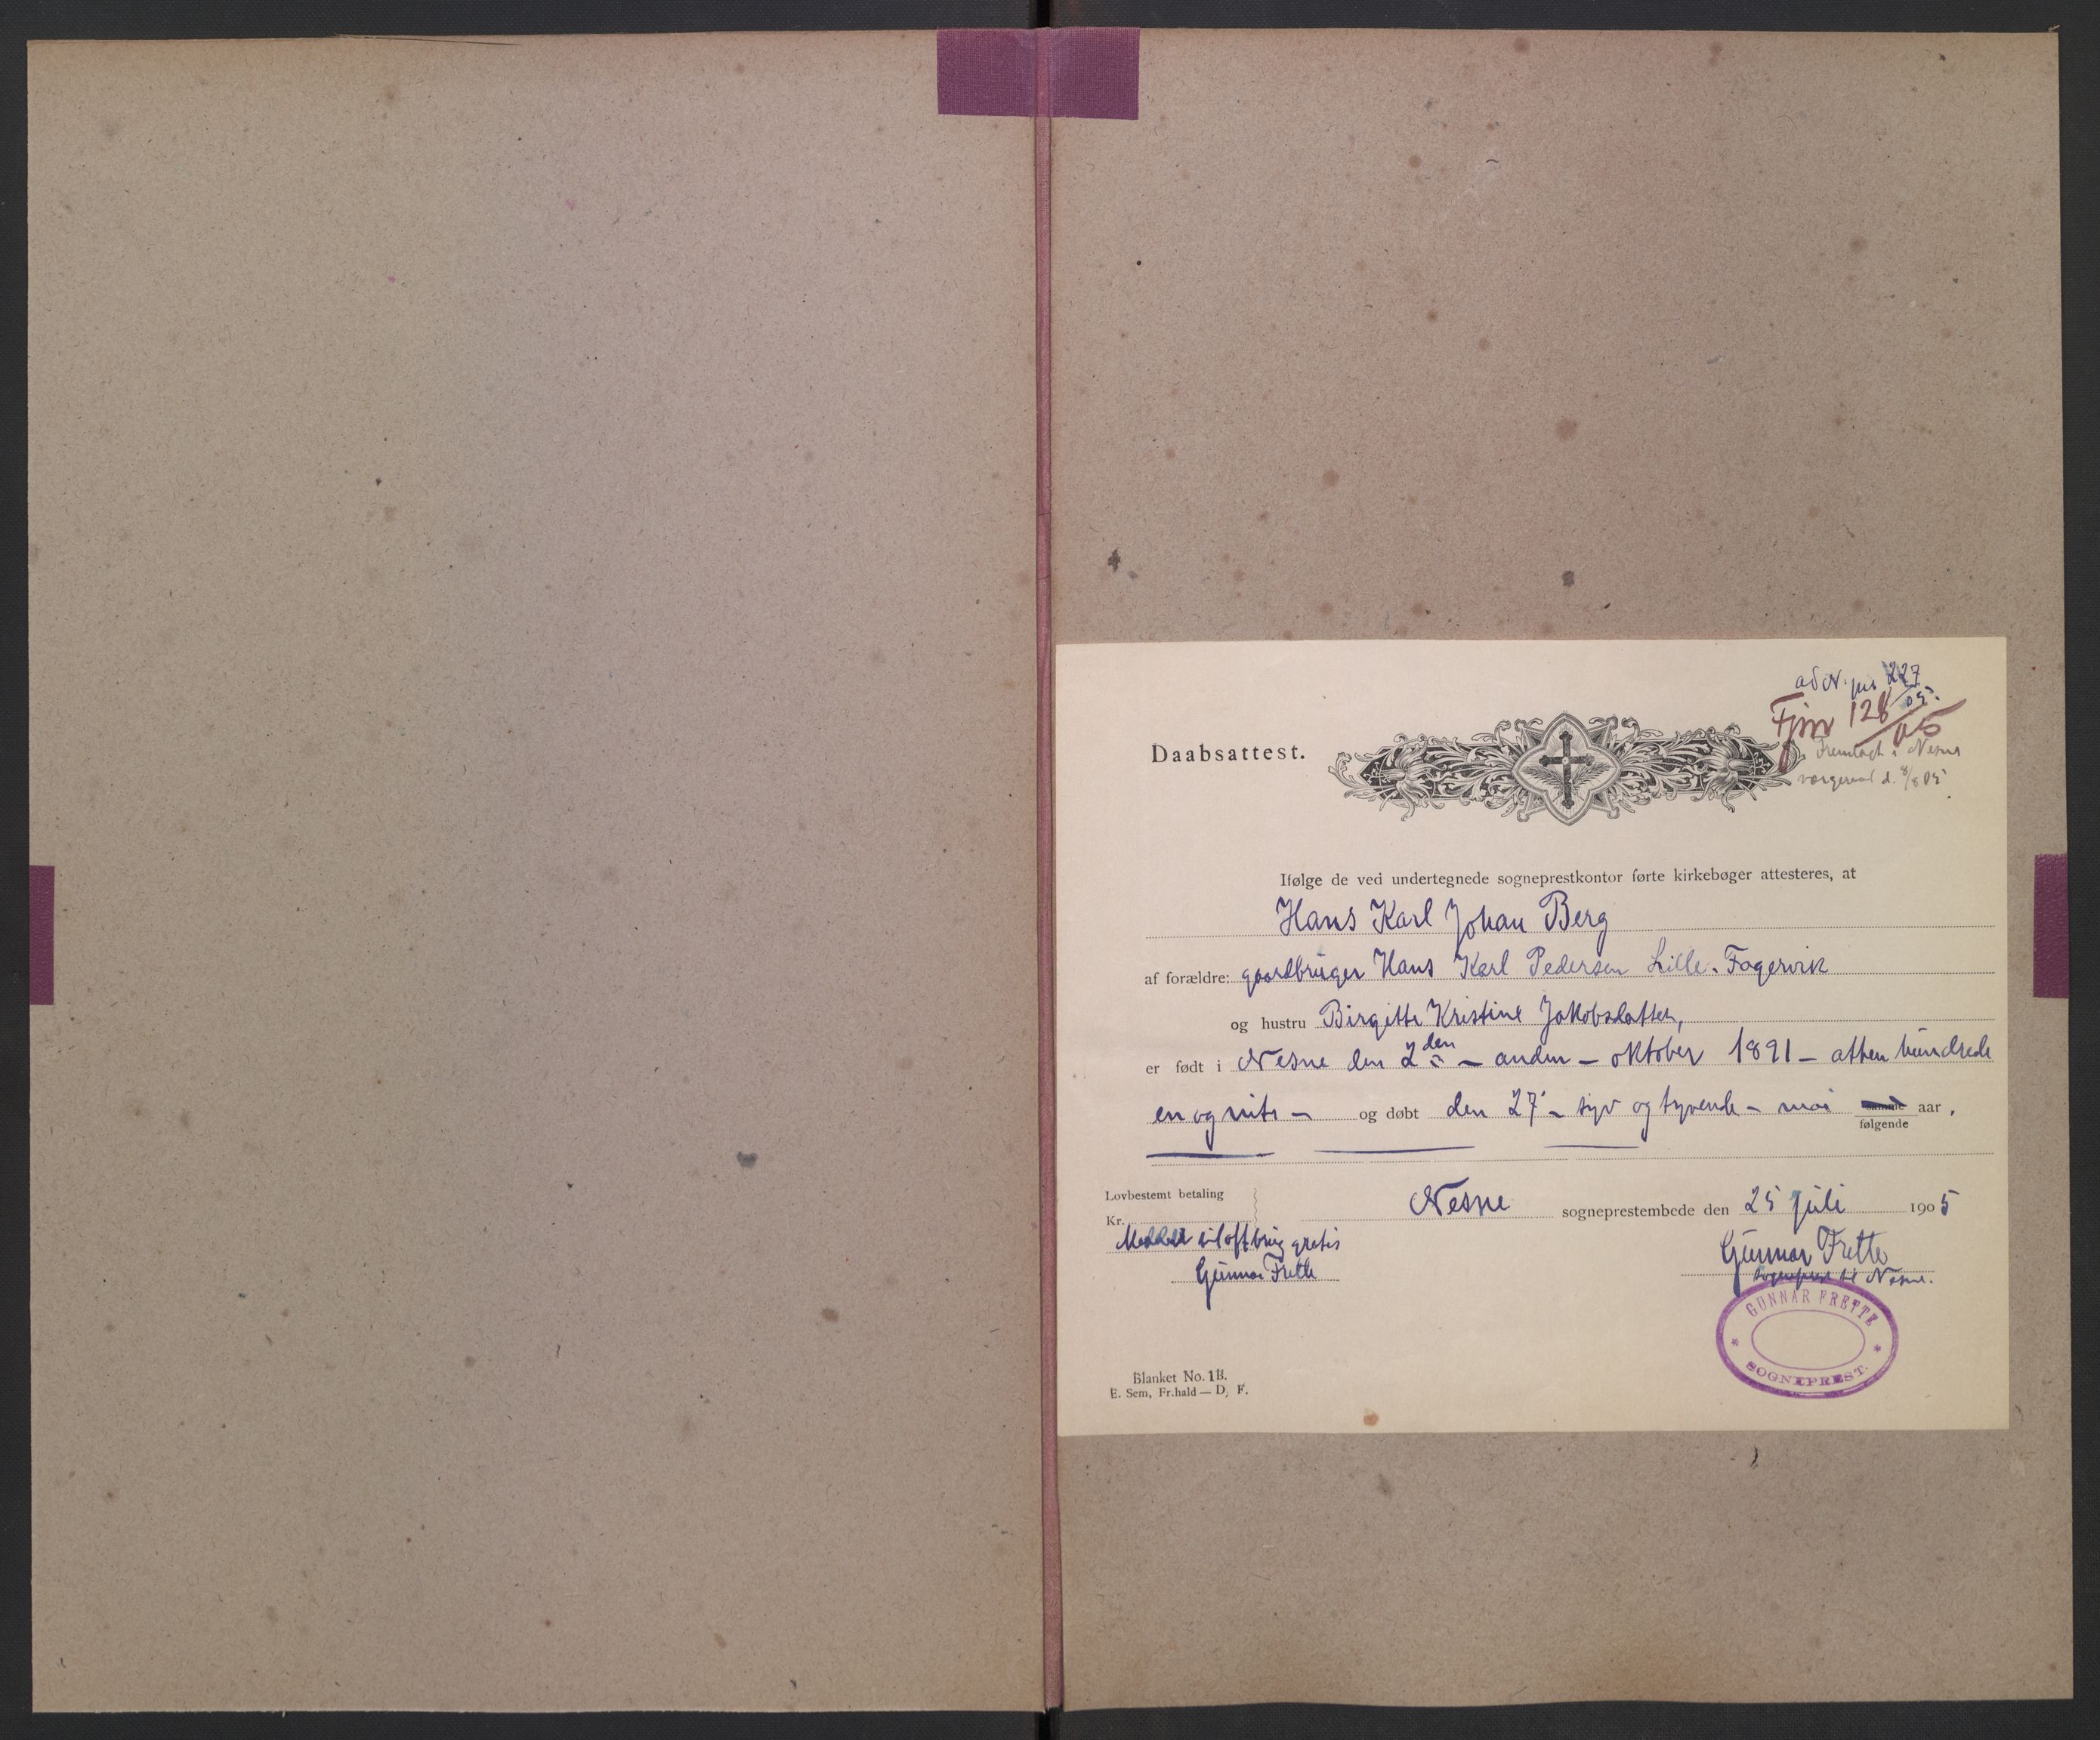 ad N. jus 227/05.
Fjnr 128/05
Fremlagt i Nesne
vergeraad d. 8/8 05.
Daabsattest.
Ifølge de ved undertegnede sogneprestkontor førte kirkebøger attesteres, at
Hans Karl Johan Berg
af forældre: gaardbruger Hans Karl Pedersen Lille-Fagervik
og hustru Birgitte Kristine Jakobsdatter,
er født i Nesne den 2den - anden - oktober 1891 - atten hundrede
en og niti - og døbt den 27 - syv og tyvende - mai samme følgende aar.
Lovbestemt betaling
Kr.
Nesne sogneprestembede den 25 juli 1905
gratis
Gunnar Frette
Gunnar Frette
sogneprest til Nesne.
GUNNAR FRETTE
* *
SOGNEPREST.
Blanket No. 1B.
E. Sem, Fr.hald — D, F.